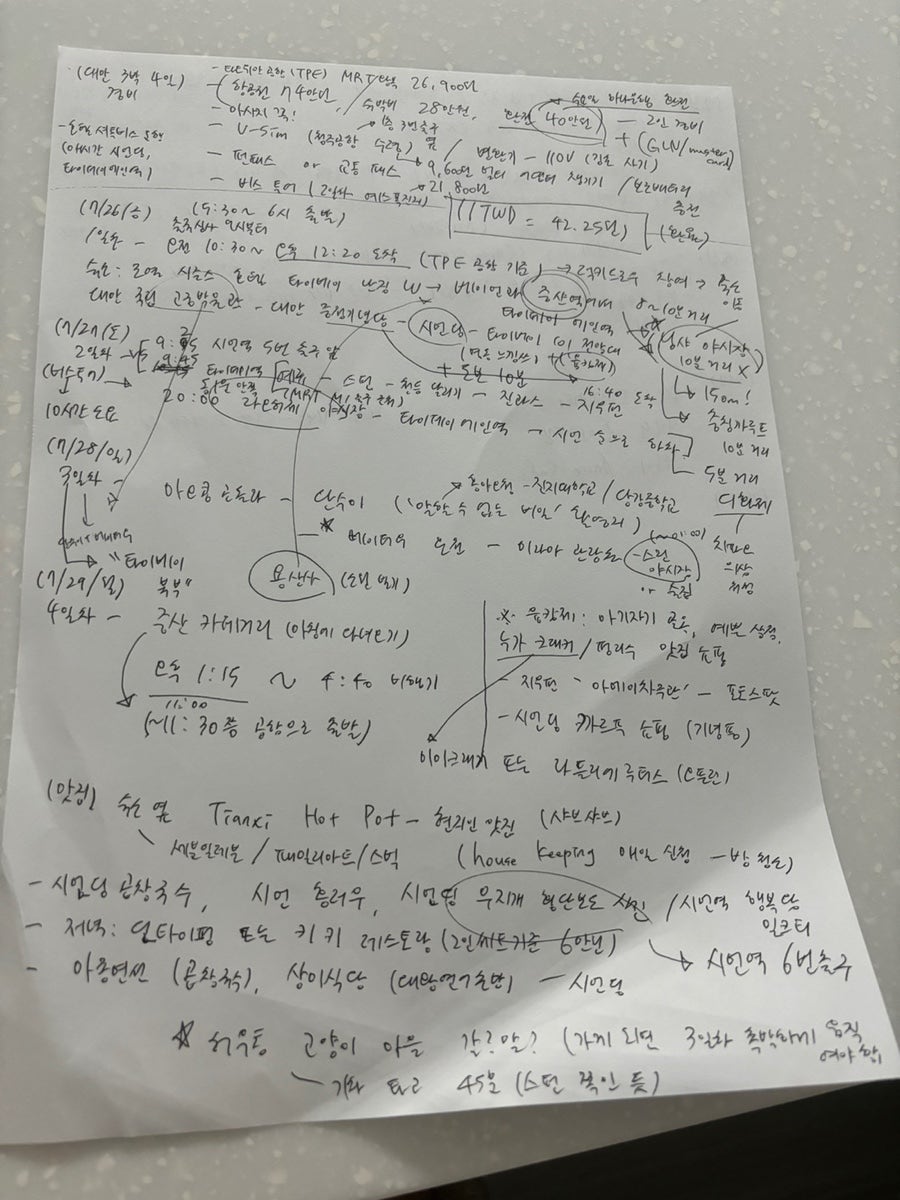 (대만 3박 4일) 경비
- 타오위안 공항 (TPE) MRT 왕복 26,900원
- 항공권 74만원 / 숙박비 28만원, 환전 40만원 — 2인 경비
수요일 하나은행 환전
+ (GLN/master card)
- U-Sim (청주공항 수령) 1층 3번 출구 옆 / 변환기 - 110V
- 펀패스 or 교통 패스 9,600원
- 버스 투어 (2일차 예스폭진지) 21,800원
보조배터리 충전
1 TWD = 42.25원 (환율)
(7/26/금) (5:30~ 6시 출발)
1일차 - 오전 10:30~ 오후 12:20 도착 (TPE 공항 기준) → 럭키드로우 참여 → 숙소 이동
숙소: 로얄 시즌스 호텔 타이베이 난징 W → 중산역에서 8~10분 거리
대만 국립 고궁박물관 - 대만 중정기념당 - 시먼딩 - 타이베이 101 전망대
타이베이 메인역
+ 도보 10분
+ (융캉제)
닝샤 야시장 10분 거리 X
150m!
(7/27/토)
2일차 - 9:45 시먼역 5번 출구 앞
(버스투어)
타이베이역
예류 - 스펀 - 천등 날리기 - 진과스 - 지우펀
16:40 도착
20:00 라오허제 야시장 - 타이베이 메인역 → 시먼 순으로 하차
10시간 소요
10분 거리
5분 거리
디화제
(7/28/일)
3일차 -
마오콩 곤돌라 - 단수이 ('말할 수 없는 비밀' 촬영지)
홍마오청 - 진리대학교 / 담강중학교
★ 베이터우 온천 - 미라마 관람차 - 스린 야시장 or 술집
"타이베이 북부"
용산사 (소원 빌기)
(7/29/월)
4일차 - 중산 카페거리 (아침에 다녀오기)
오후 1:15 ~ 4:40 비행기
11:00
(~11:30쯤 공항으로 출발)
※ 융캉제: 아기자기 골목, 예쁜 상점,
누가 크래커 / 펑리수 맛집 쇼핑
- 지우펀 '아메이차루관' - 포토스팟
- 시먼딩 까르푸 쇼핑 (기념품)
미미크래커 또는 라뜰리에 루터스 (오픈런)
(맛집) 숙소 옆 Tianxi Hot Pot - 현지인 맛집 (샤브샤브)
세븐일레븐 / 패밀리마트 / 스벅 (house keeping 매일 신청 - 방 청소)
- 시먼딩 곱창국수, 시먼 홍러우, 시먼딩 무지개 횡단보도 사진 / 시먼역 행복당 밀크티
- 저녁: 딘타이펑 또는 키키 레스토랑 (2인세트기준 6만원)
→ 시먼역 6번출구
- 아종면선 (곱창국수), 삼미식당 (대왕연어초밥) - 시먼딩
★ 허우통 고양이 마을 갈?말? (가게 되면 3일차 촉박하게 움직여야 함)
기차 타고 45분 (스펀 쪽인 듯)